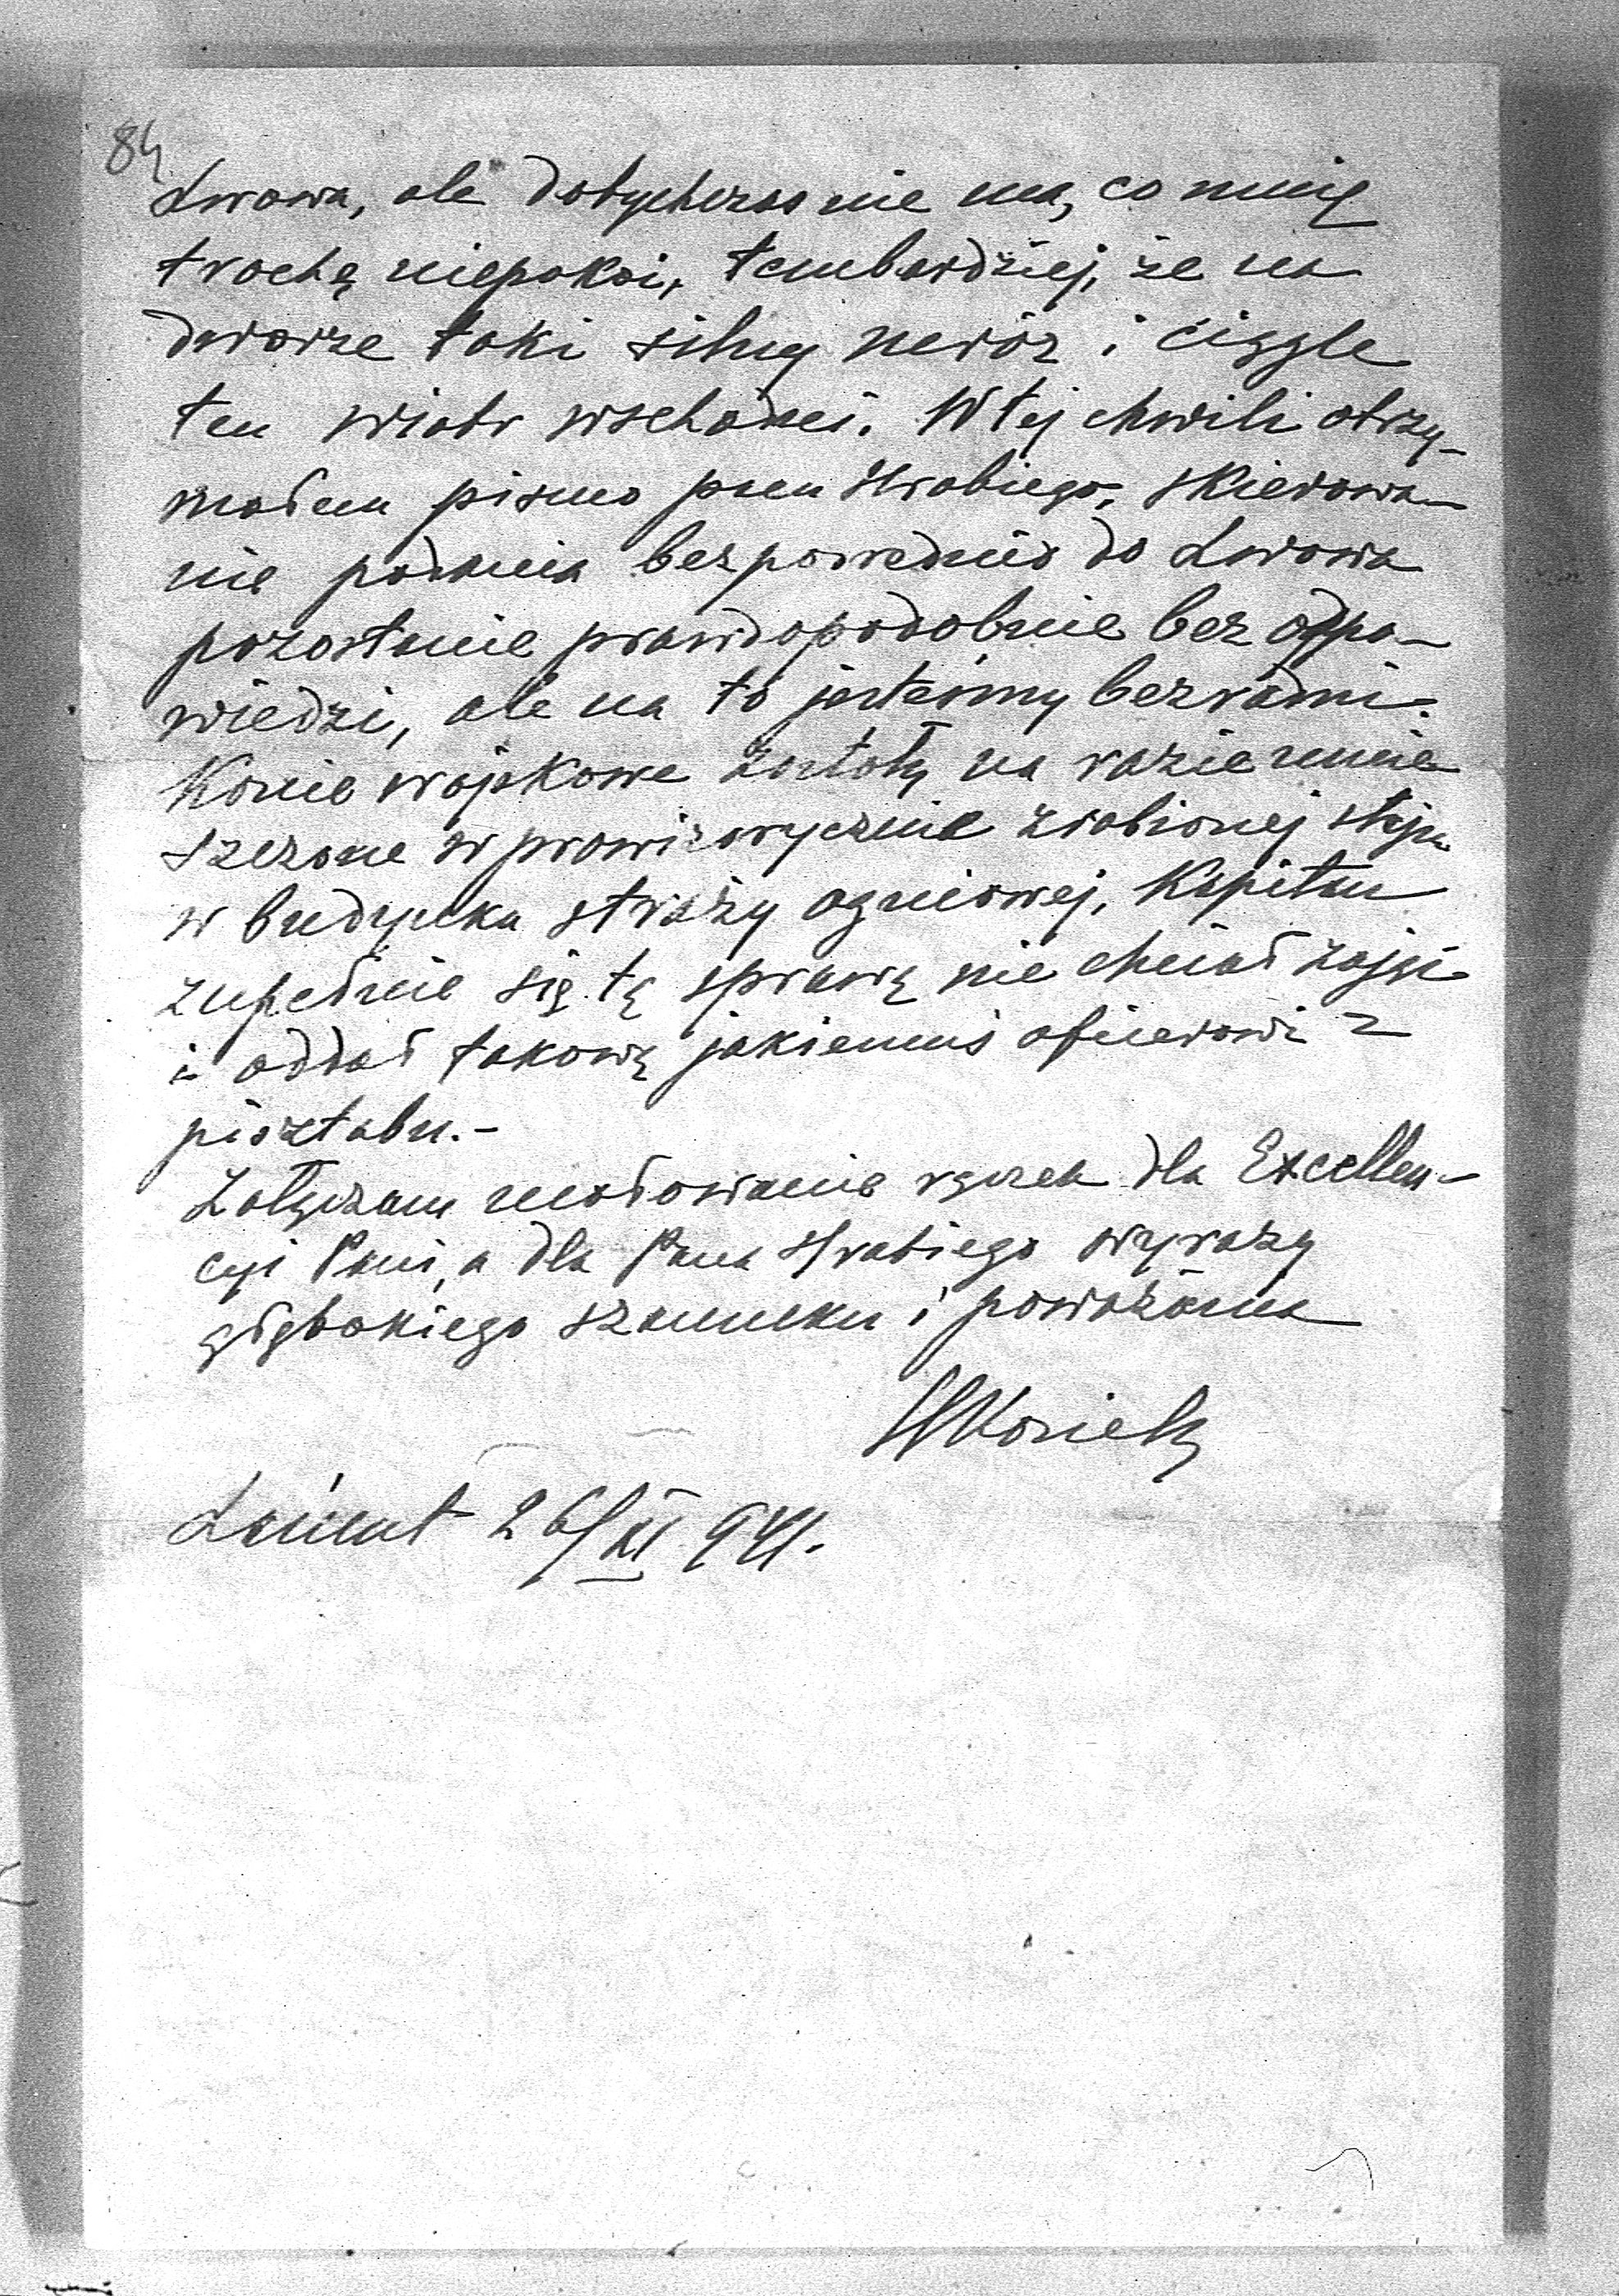 84
Lwowa, ale dotychczas nie ma, co mnię
trochę niepokoi, tembardziej, że na
dworze taki silny mróz i ciągle
ten wiatr wschodni. W tej chwili otrzy-
małem pismo pana Hrabiego, skierowa-
nie podania bezpośrednio do Lwowa
pozostanie prawdopodobnie bez odpo-
wiedzi, ale na to jesteśmy bezradni.
Konie wojskowe zostały na razie umie-
szczone w prowizorycznie zrobionej stajni
w budynku straży ogniowej, Kapitan
zupełnie się tą sprawą nie chciał zająć
i oddał takową jakiemuś oficerowi z
sztabu.-
Załączam ucałowanie rączek dla Excellen-
cyi Pani, a dla Pana Hrabiego wyrazy
głębokiego szacunku i poważania
Łańcut 26/XI 941.